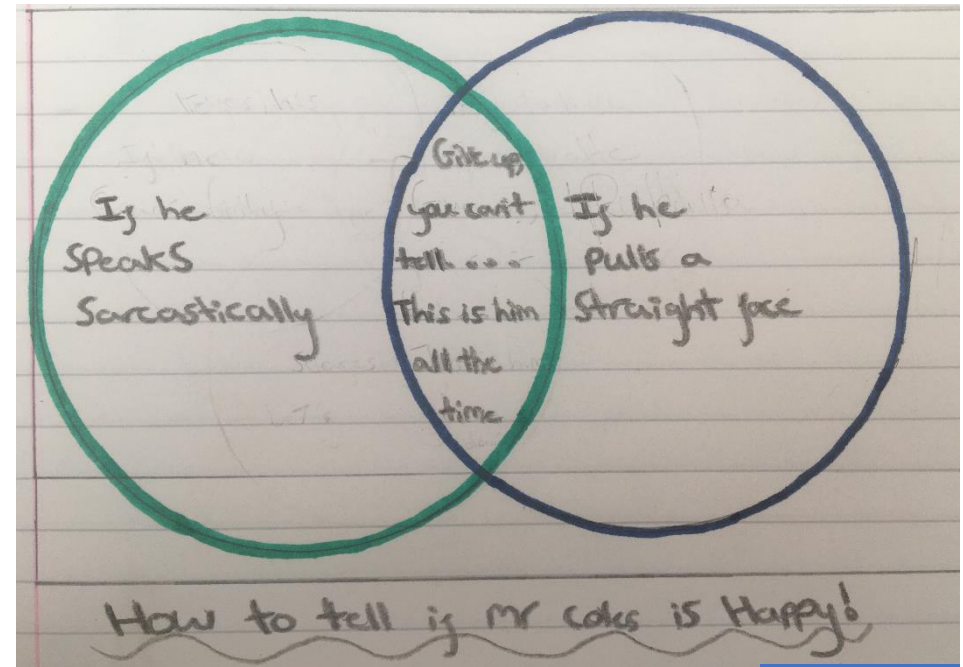 If he
speaks
Sarcastically
Give up,
you can't
tell...
This is him
all the
time
If he
pulls a
Straight face
How to tell if mr coles is Happy!